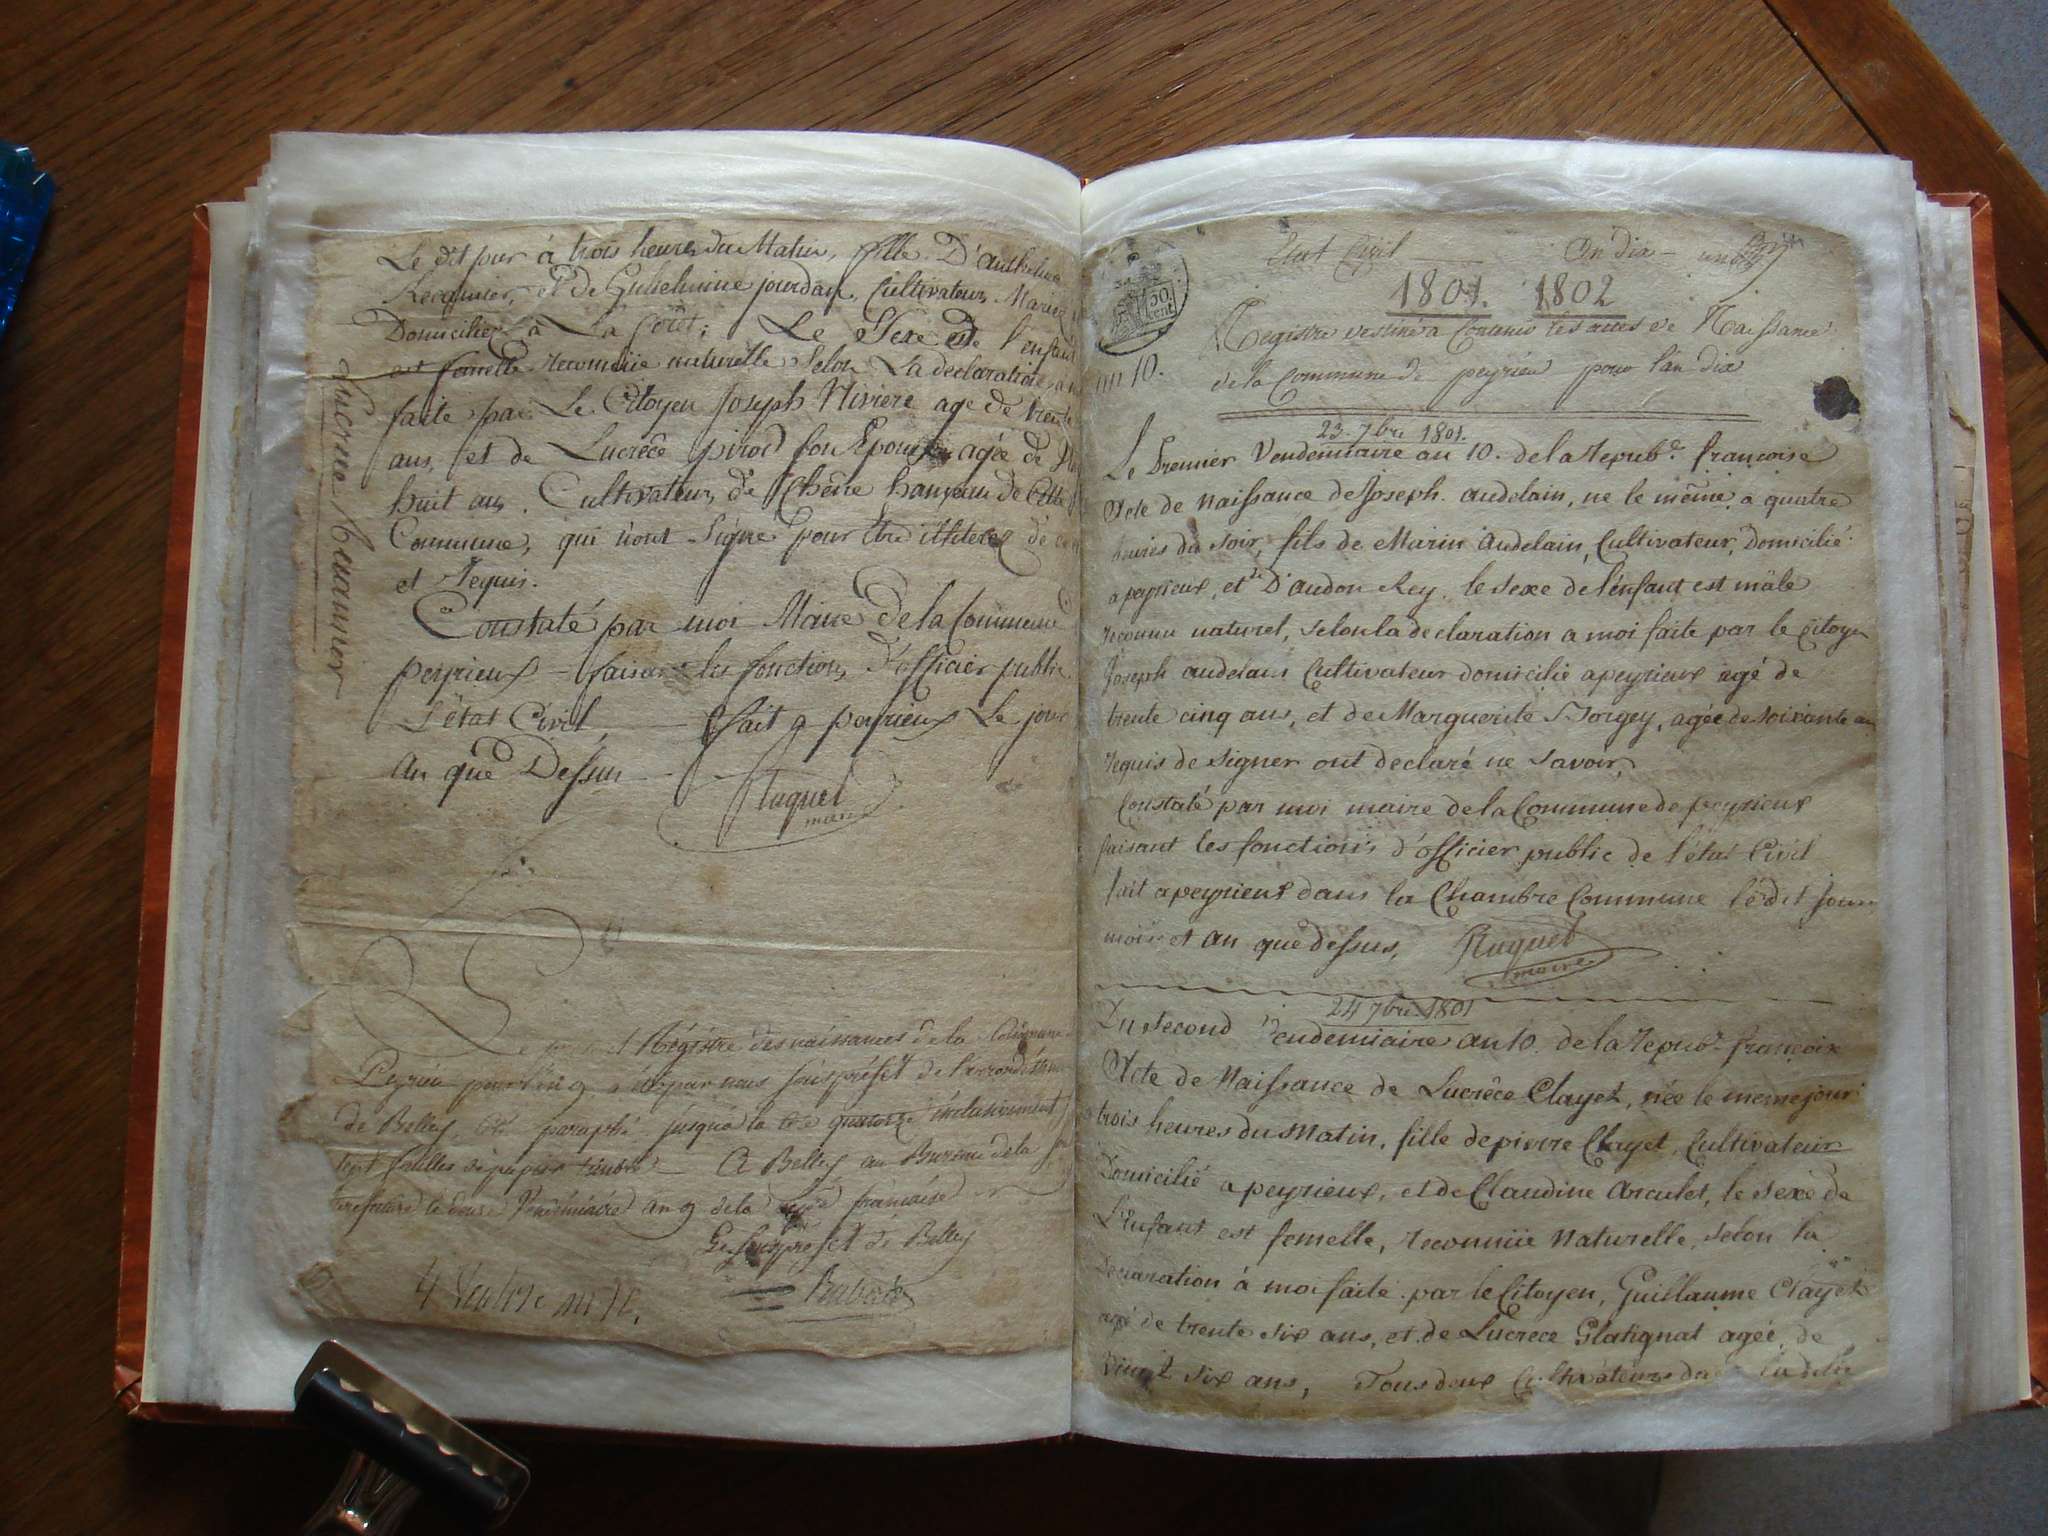 Le dit jour à trois heures du Matin, fille D'anthelme
et de Guilelmine jourdan, Cultivateurs Mariez
Domiciliez à La forêt; Le Sexe de l'enfant
est femelle reconnüe naturelle Selon La declaration à m
faite par Le Citoyen Joseph Riviere age de trente
ans, et de Lucrêce pirod son Epouse agée de
huit ans. Cultivateurs de Chêne hameau de Cette
Commune, qui n'ont Signé pour être illiterez de ce
et Requis.
Constaté par moi Maire de la Commune
peyrieux faisant les fonctions d'officier public
L'état Civil fait a peyrieux Le jour
an que Dessus
Ruquet
maire
Le present Régistre des naissances de la Commune
Peyrieu pour l'an 9 a été par nous sous préfet de l'arrondissem
de Belley, été paraphé jusqu'à la quatorze inclusivement
sept feuilles de papier timbré A Belley au Bureau de la
prefecture le douze Vendémiaire an 9 de la française
Le sous préfet de Belley
Rubat
4
Lucrine
Etat Civil An dix
1801. 1802
30
cent
an 10.
Registre destiné a Contenir les actes de Naissance
de la Commune de peyrieu pour l'an dix
23. 7bre 1801.
Le Premier Vendemiaire an 10. de la Repub.e françoise
Acte de Naissance de Joseph. audelain, né le même, a quatre
heures du soir, fils de Marin Audelain, Cultivateur, Domicilié
a peyrieux, et de D'audon Rey. le sexe de l'enfant est mâle
reconnu naturel, selon la declaration a moi faite par le Citoyen
Joseph audelain Cultivateur domicilié a peyrieux agé de
trente cinq ans, et de Marguerite Borgey, agée de soixante an
requis de signer ont declaré ne savoir,
Constaté par moi maire de la Commune de peyrieux
faisant les fonctions d'officier public de l'état Civil
fait a peyrieux dans la Chambre Commune le dit jour
mois et an que dessus, Ruquet
maire
24 7bre 1801
Du second Vendemiaire an 10. de la Repub.e françoise
Acte de Naissance de Lucrêce Clayet, née le même jour
a trois heures du Matin, fille de pierre Clayet, Cultivateur
Domicilié a peyrieux, et de Claudine Arculet, le sexe de
L'enfant est femelle, reconnüe Naturelle, selon la
Declaration à moi faite par le Citoyen, Guillaume Clayet
agé de trente six ans, et de Lucrece Glatignat agée de
Vingt six ans, Tous deux Cultivateurs du dit